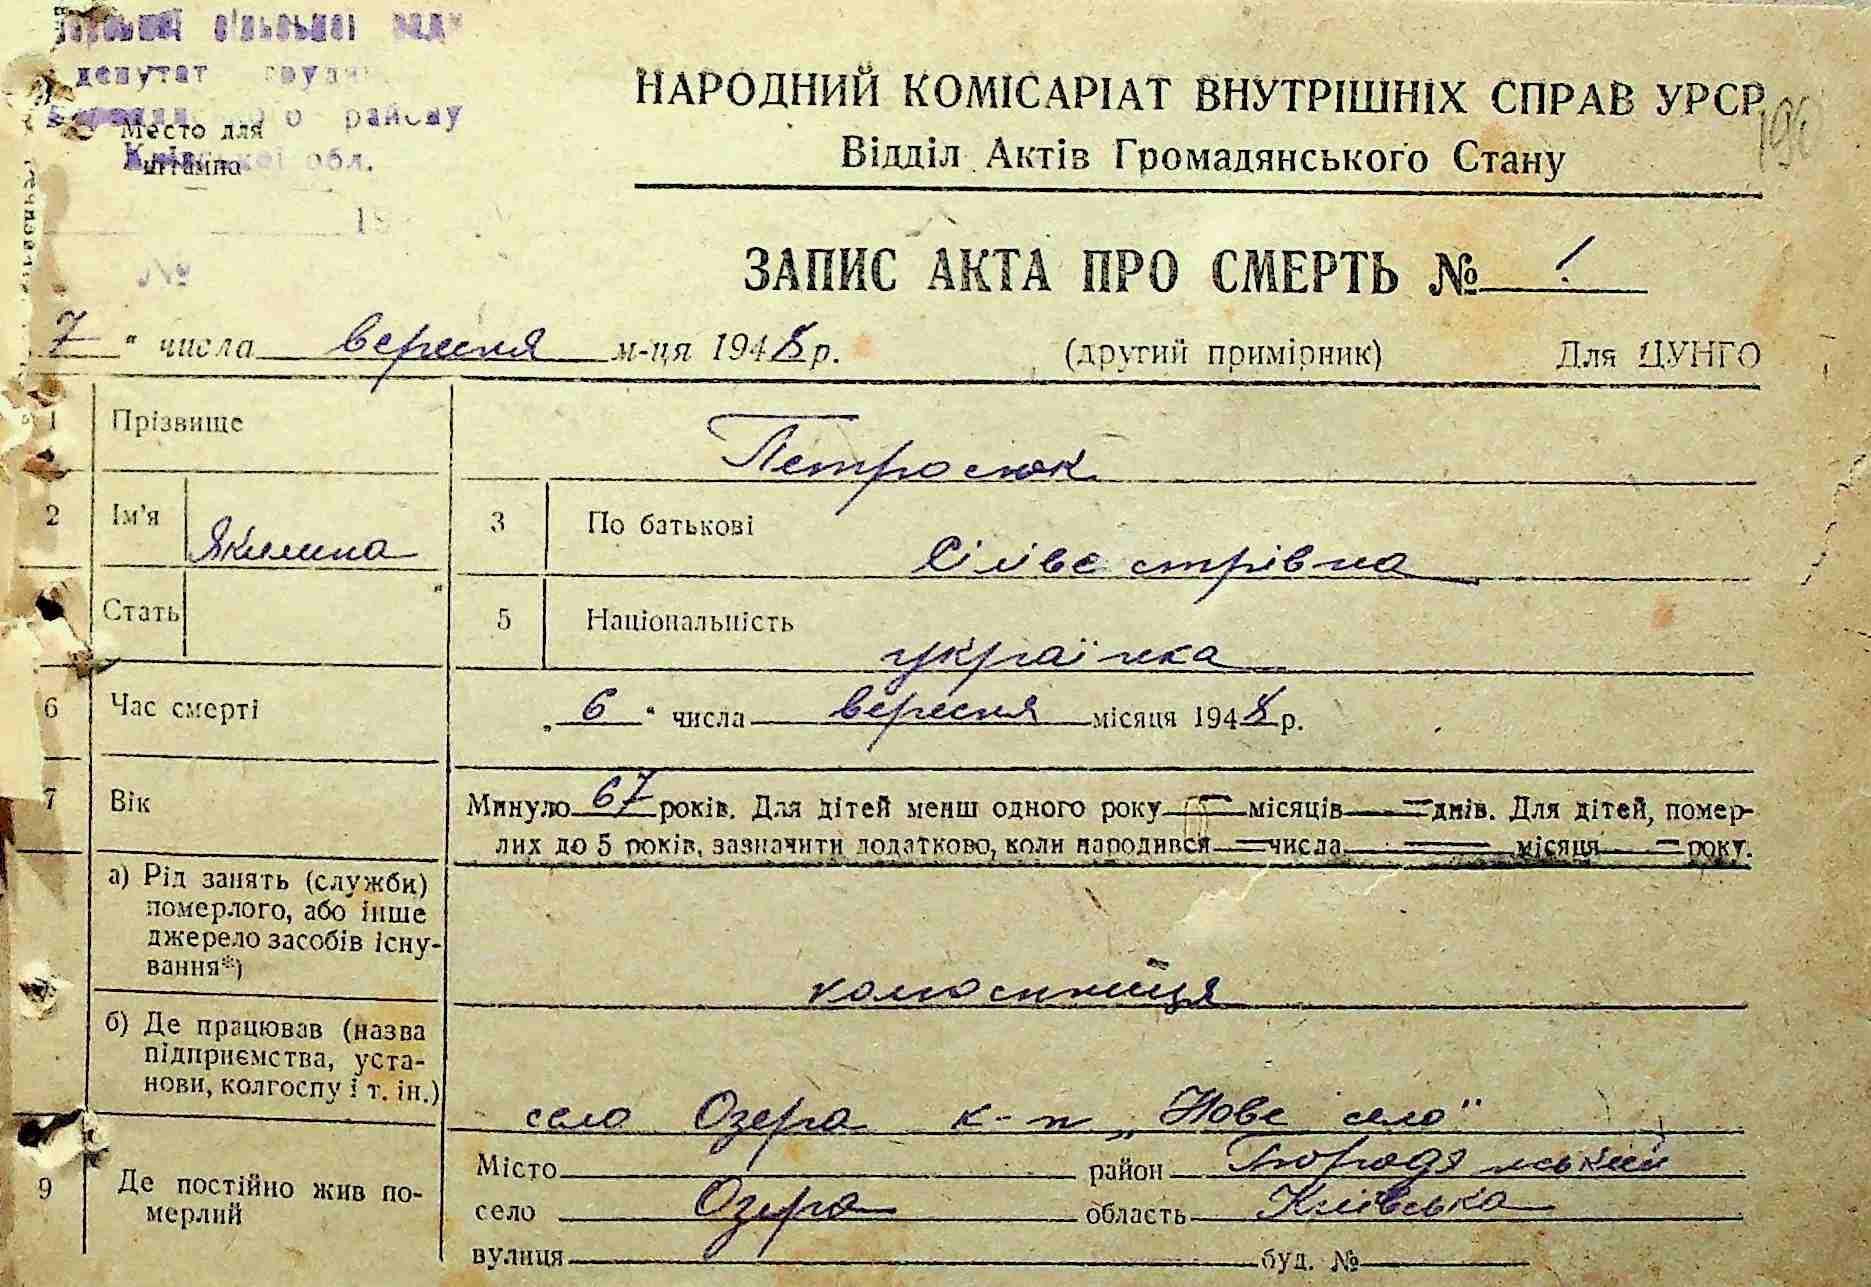 сільської
депутат
району
Место для
штампа
обл.
19
№
НАРОДНИЙ КОМІСАРІАТ ВНУТРІШНІХ СПРАВ УРСР
Відділ Актів Громадянського Стану
ЗАПИС АКТА ПРО СМЕРТЬ № 1
7 " числа вересня м-ця 1948 р. (другий примірник) Для ЦУНГО
1 Прізвище
Петросюк
2 Ім'я Якилина 3 По батькові Сілівєстрівна
Стать 5 Національність українка
6 Час смерті „ 6 " числа вересня місяця 1948 р.
7 Вік Минуло 67 років. Для дітей менш одного року — місяців — днів. Для дітей, помер-
лих до 5 років, зазначити додатково, коли народився — числа — місяця — року.
а) Рід занять (служби)
померлого, або інше
джерело засобів існу-
вання*)
колгоспниця
б) Де працював (назва
підприємства, уста-
нови, колгоспу і т. ін.)
село Озера к-п „Нове село"
9 Де постійно жив по-
мерлий
Місто район Бородянський
село Озера область Київська
вулиця буд. №